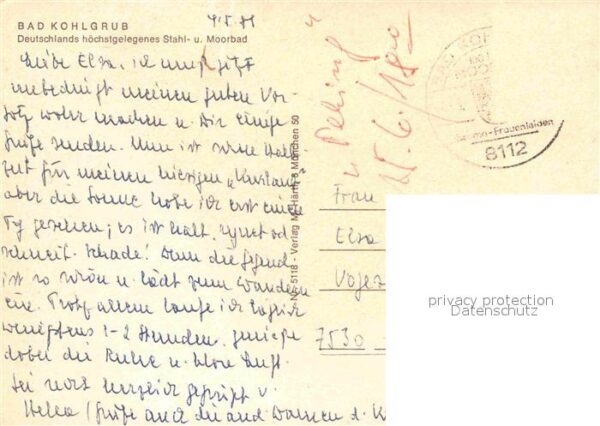 4.5.81
BAD KOHLGRUB
Deutschlands höchstgelegenes Stahl- u. Moorbad
Liebe Elsa, ich muß jetzt
unbedingt meinen guten Vor-
satz wahr machen u. Dir einige
Grüße senden. Nun ist schon Halb-
zeit für meinen hiesigen „Kurlaub"
aber die Sonne habe ich erst einen
Tg gesehen; es ist kalt, regnet od.
schneit. Schade! Denn die Gegend
ist so schön u. lädt zum Wandern
ein. Trotz allem laufe ich täglich
wenigstens 1-2 Stunden, genieße
dabei die Ruhe u. klare Luft.
Sei noch herzlich gegrüßt v.
Helea (Grüße auch die and. Damen d. K
Nr. 5118 - Verlag M. Härtl, 8 München 50
15.6./18
-Frauenleiden
8112
Frau
Elsa
7530
privacy protection
Datenschutz